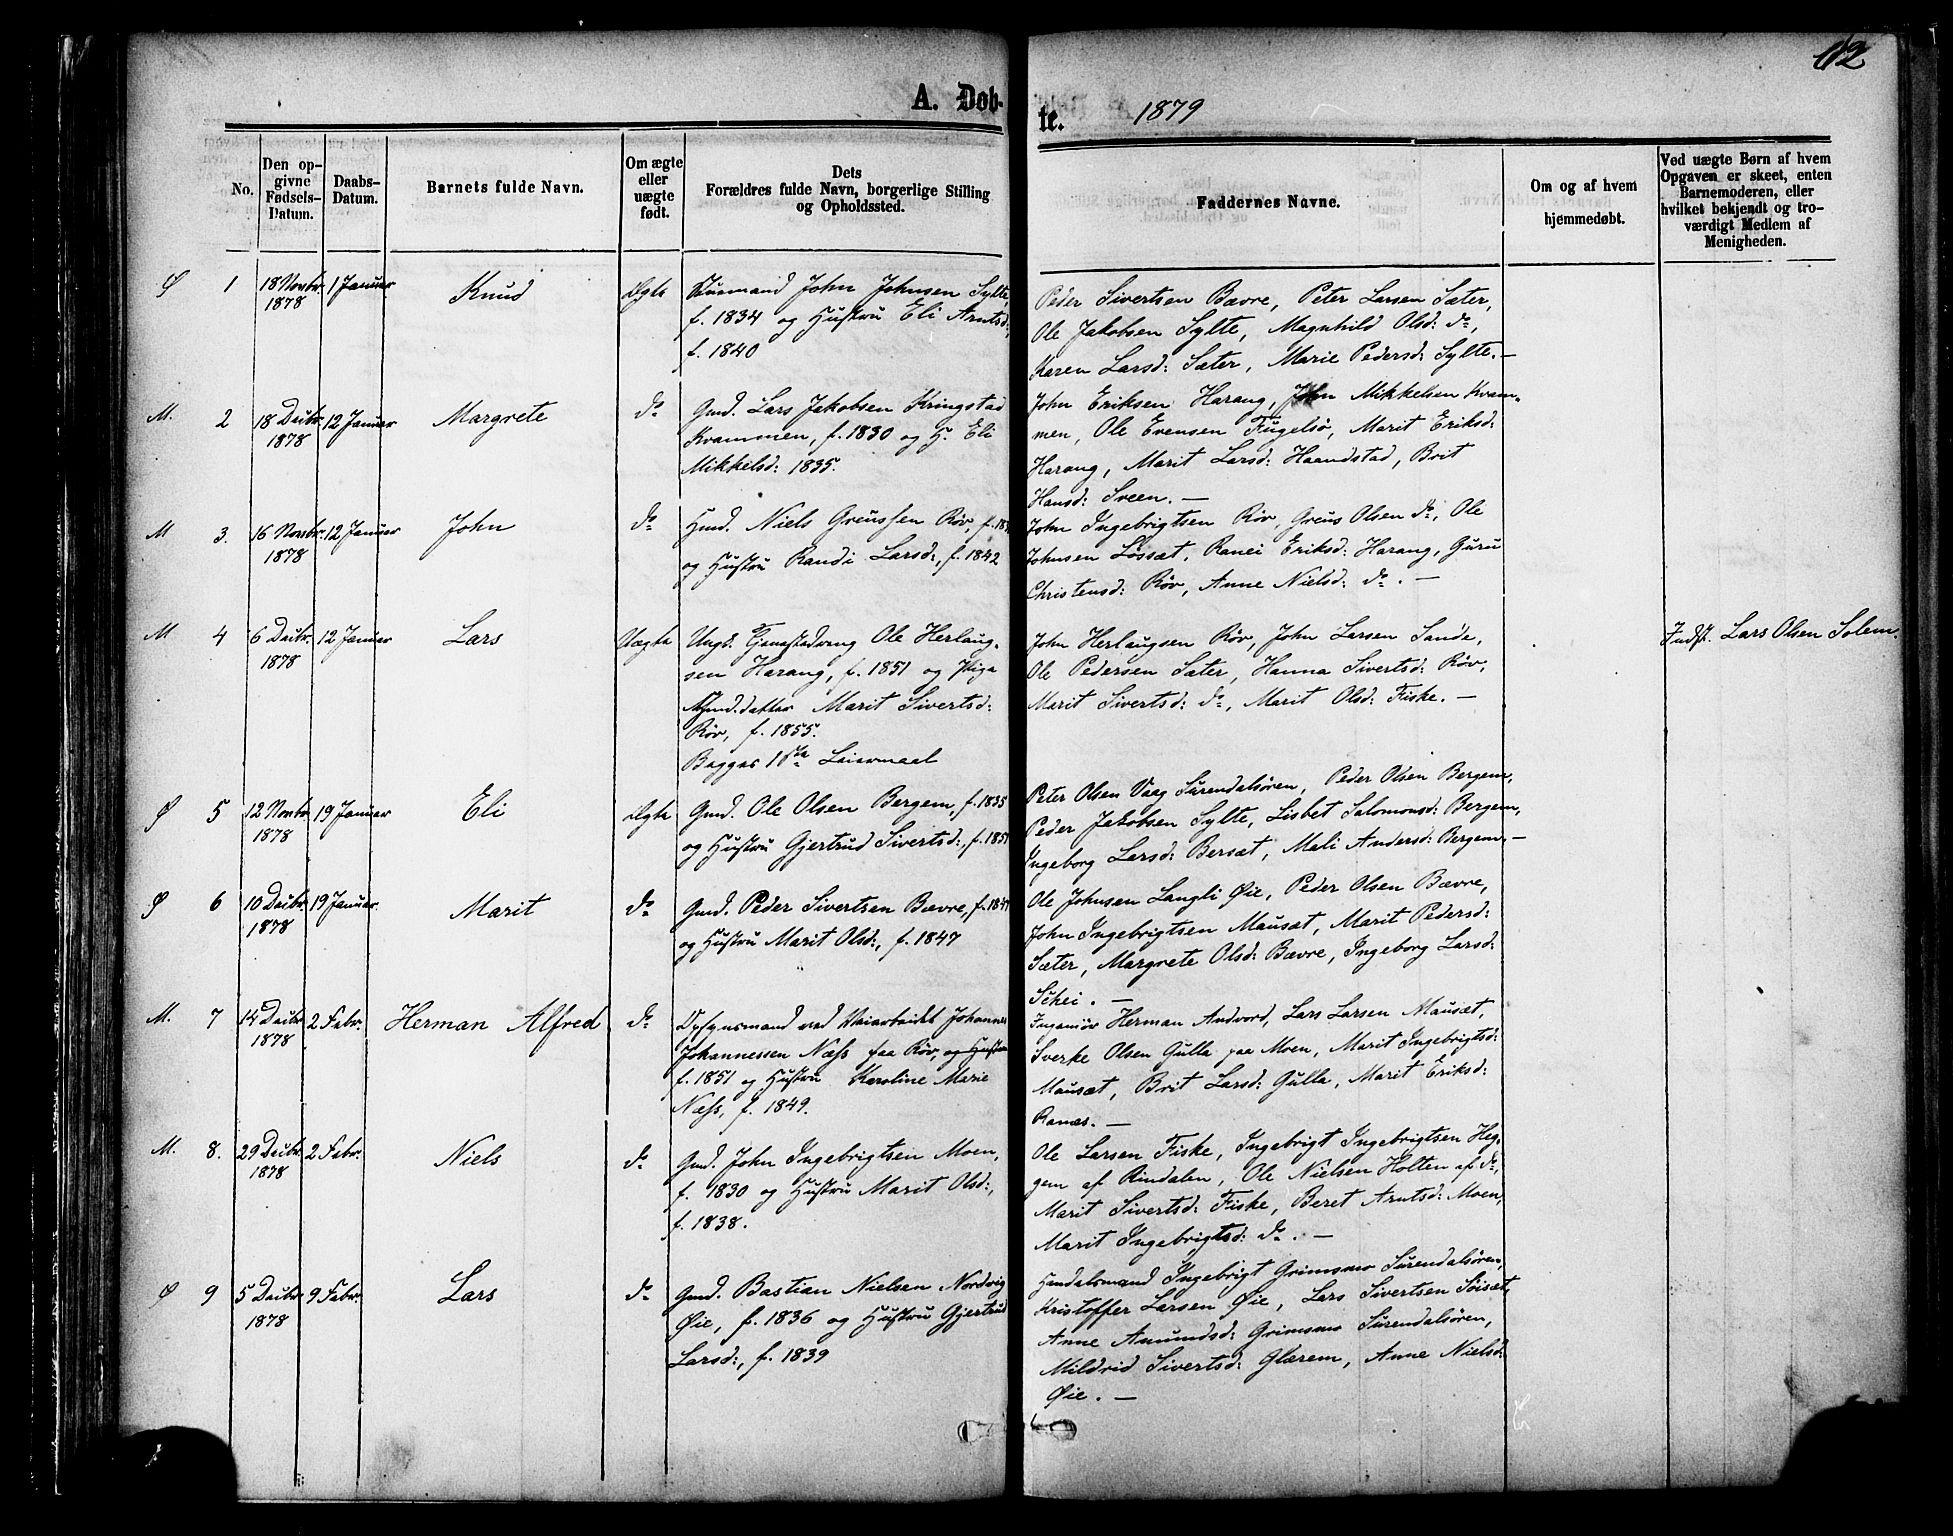 62
A. Døb-
te.
1879
No.
Den op-
givne
Fødsels-
Datum.
Daabs-
Datum.
Barnets fulde Navn.
Om ægte
eller
uægte
født.
Dets
Forældres fulde Navn, borgerlige Stilling
og Opholdssted.
Faddernes Navne.
Om og af hvem
hjemmedøbt.
Ved uægte Børn af hvem
Opgaven er skeet, enten
Barnemoderen, eller
hvilket bekjendt og tro-
værdigt Medlem af
Menigheden.
Ø 1 18 Novbr. 1 Januar Knud Ægte Husmand John Johnsen Sylte,
1878 f. 1834 og Hustru Eli Arntsd:,
f. 1840
Peder Sivertsen Bævre, Peter Larsen Sæter,
Ole Jakobsen Sylte, Magnhild Olsd: do,
Karen Larsd: Sæter, Marie Pedersd: Sylte. —
M. 2 18 Decbr. 12 Januar Margrete do Gmd. Lars Jakobsen Kringstad
1878 Kvammen, f. 1830 og H. Eli
Mikkelsd: 1835.
John Eriksen Harang, John Mikkelsen Kvam-
men, Ole Evensen Fugelsø, Marit Eriksd:
Harang, Marit Larsd: Haandstad, Brit
Hansd: Sveen. —
M 3. 16 Novbr. 12 Januar John do Hmd. Niels Greussen Røv,
1878 og Hustru Randi Larsd:, f. 1842
John Ingebrigtsen Røv, Greus Olsen do, Ole
Johnsen Løssæt, Ranei Eriksd: Harang, Guru
Christensd: Røv, Anne Nielsd: do. —
M 4 6 Decbr. 12 Januar Lars Uægte Ungk. Ole Herlaug-
1878 sen Harang, f. 1851 og Pige
Gmd.datter Marit Sivertsd:
Røv, f. 1855.
Begges 1ste Leiermaal
John Herlaugsen Røv, John Larsen Sande,
Ole Pedersen Sæter, Hanna Sivertsd: Røv,
Marit Sivertsd: do, Marit Olsd: Fiske. —
Indst. Lars Olsen Solem.
Ø 5 12 Novbr. 19 Januar Eli Ægte Gmd. Ole Olsen Bergem, f. 1835
1878 og Hustru Gjertrud Sivertsd:, f. 1851
Peter Olsen Vaag Surendalsøren, Peder Olsen Bergem,
Peder Jakobsen Sylte, Lisbet Salomonsd: Bergem,
Ingeborg Larsd: Bersæt, Mali Andersd: Bergem. —
Ø 6 10 Decbr. 19 Januar. Marit do Gmd. Peder Sivertsen Bævre,
1878 og Hustru Marit Olsd:, f. 1847
Ole Johnsen Langli Øie, Peder Olsen Bævre,
John Ingebrigtsen Mausæt, Marit Pedersd:
Sæter, Margrete Olsd: Bævre, Ingeborg Larsd:
Schei. —
M. 7 14 Decbr. 2 Febr. Herman Alfred do Opsynsmand ved Veiarbeidet Johannes
1878 Johannessen Næss paa Røv, og Hustru
f. 1851 og Hustru Karoline Marie
Næss, f. 1849.
Ingeniør Herman Andvord, Lars Larsen Mausæt,
Sverke Olsen Gulla paa Moen, Marit Ingebrigtsd:
Mausæt, Brit Larsd: Gulla, Marit Eriksd:
Ranæs. —
M. 8. 29 Decbr. 2 Febr. Niels do Gmd. John Ingebrigtsen Moen,
1878 f. 1830 og Hustru Marit Olsd:,
f. 1838.
Ole Larsen Fiske, Ingebrigt Ingebrigtsen Heg-
gem af Rindalen, Ole Nielsen Holten af do,
Marit Sivertsd: Fiske, Beret Arntsd: Moen,
Marit Ingebrigtsd: do. —
Ø 9 5 Decbr. 9 Febr. Lars do Gmd. Bastian Nielsen Nordvig
1878 Øie, f. 1836 og Hustru Gjertrud
Larsd:, f. 1839
Handelsmand Ingebrigt Grimsmo Surendalsøren,
Kristoffer Larsen Øie, Lars Sivertsen Søisæt,
Anne Amundsd: Grimsmo Surendalsøren,
Mildrid Sivertsd: Glærem, Anne Nielsd:
Øie. —